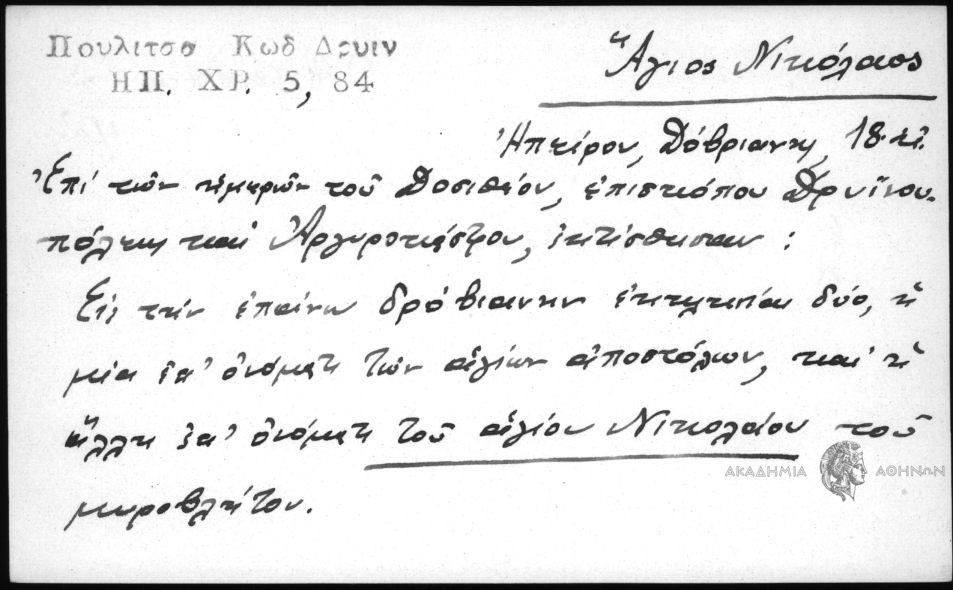 Πουλιτσα Κωδ Δρυιν
ΗΠ. ΧΡ. 5, 84
Ἅγιος Νικόλαος
Ἠπείρου, Δόβριανη, 18
Ἐπί τῶν ἡμερῶν τοῦ Δοσιθέου, ἐπισκόπου Δρυϊνου-
πόλεως καί Ἀργυροκάστρου, ἐκτίσθησαν :
Εἰς τήν ἐπάνω δρόβιανην ἐκκλησίαι δύο, ἡ
μία ἐπ' ὀνόματι τῶν ἁγίων ἀποστόλων, καί ἡ
ἄλλη ἐπ' ὀνόματι τοῦ ἁγίου Νικολάου τοῦ
μυροβλήτου.
ΑΚΑΔΗΜΙΑ ΑΘΗΝΩΝ